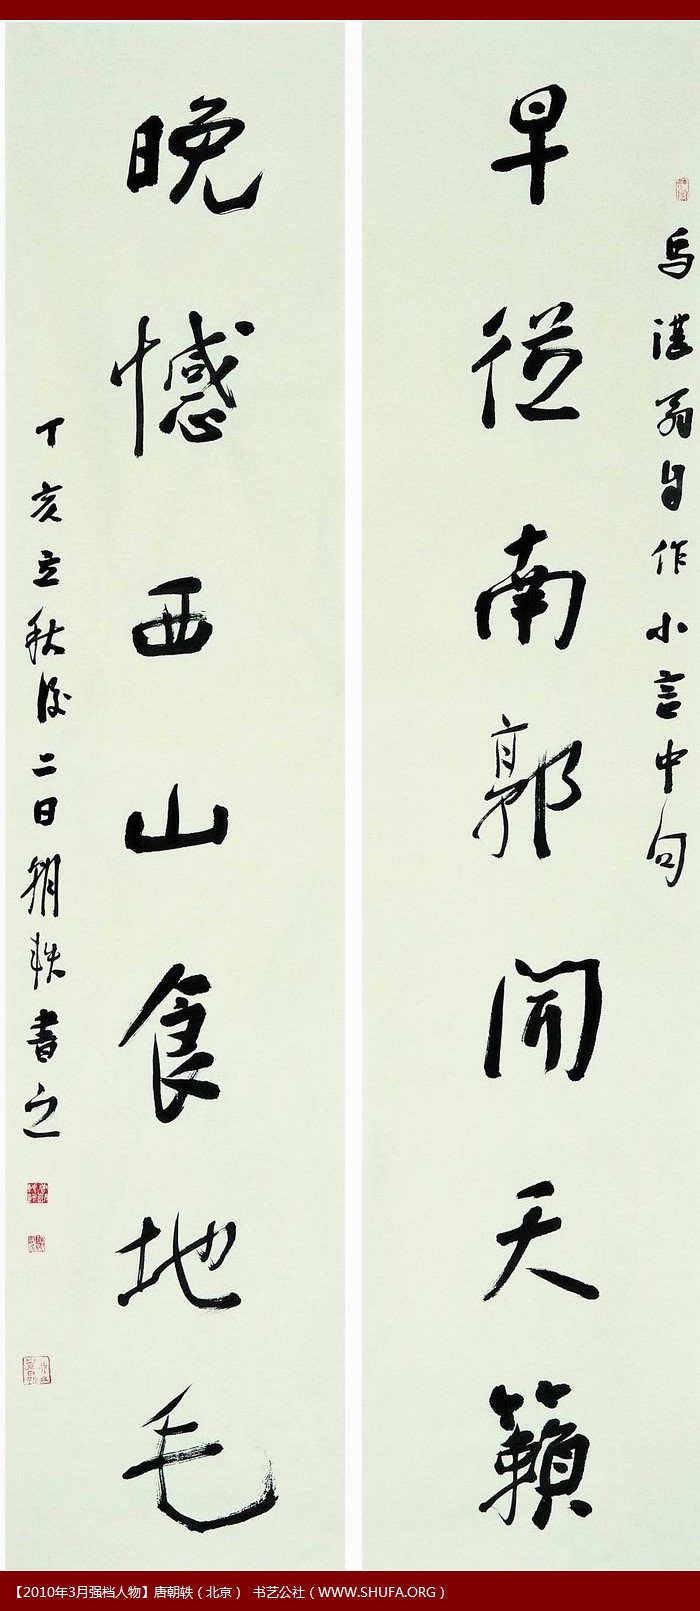 馬湛翁自作小言中句
早從南郭聞天籟
晚憾西山食地毛
丁亥立秋後二日朝軼書之
【2010年3月强档人物】唐朝轶（北京） 书艺公社（WWW.SHUFA.ORG）